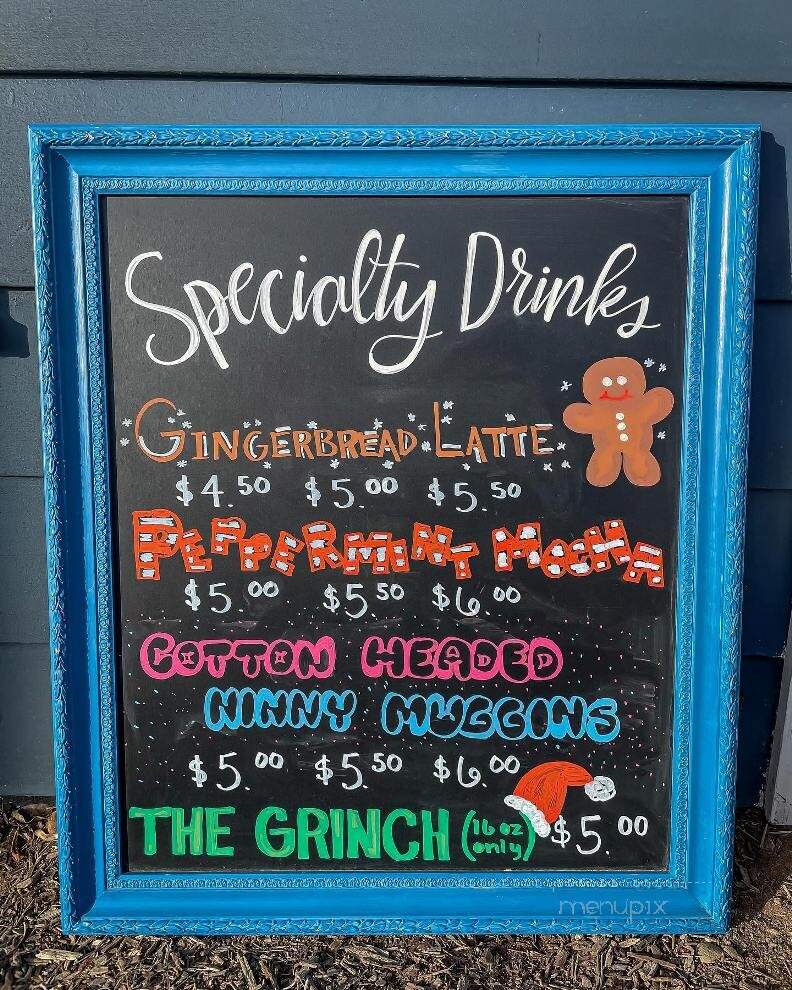 Specialty Drinks
GINGERBREAD LATTE
$4.50 $5.00 $5.50
PEPPERMINT MOCHA
$5.00 $5.50 $6.00
COTTON HEADED
NINNY MUGGINS
$5.00 $5.50 $6.00
THE GRINCH (16 oz only) $5.00
menupix